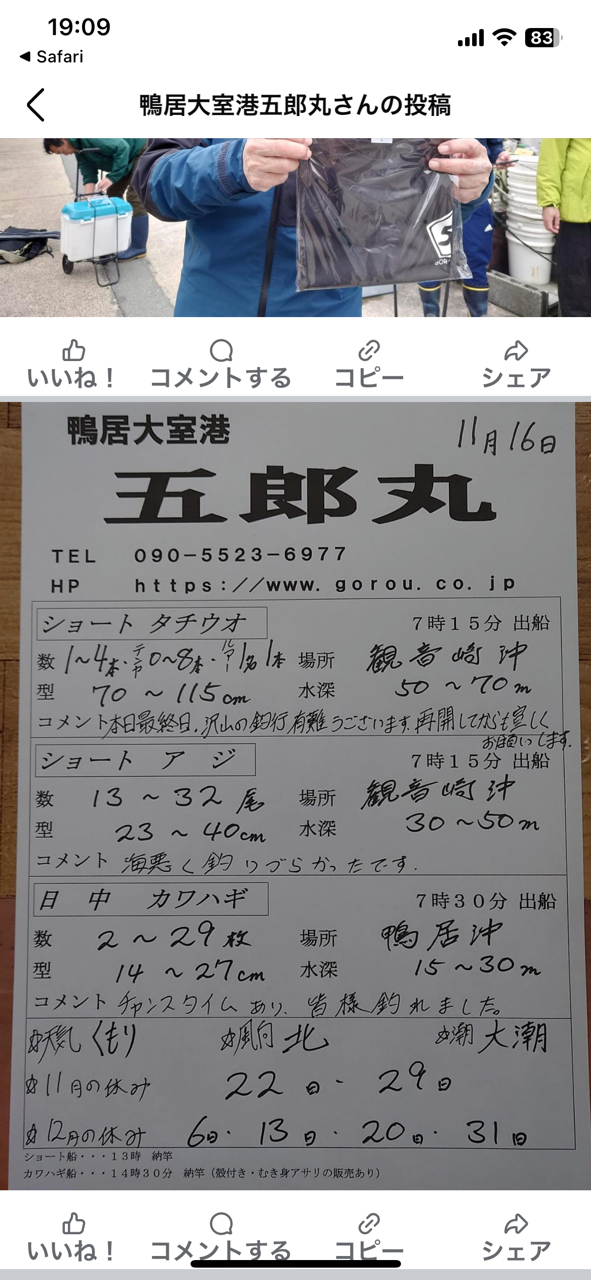 19:09
83
◀ Safari
鴨居大室港五郎丸さんの投稿
S
いいね！ コメントする コピー シェア
鴨居大室港
11月16日
五郎丸
TEL 090-5523-6977
HP https://www.gorou.co.jp
ショート タチウオ 7時15分 出船
数 1〜4本・テンヤ0〜8本・ルアー1名1本 場所 観音崎沖
型 70〜115cm 水深 50〜70m
コメント 本日最終日。沢山の釣行有難うございます。再開してからも宜しく
お願いします。
ショート アジ 7時15分 出船
数 13〜32尾 場所 観音崎沖
型 23〜40cm 水深 30〜50m
コメント 海悪く釣りづらかったです.
日中 カワハギ 7時30分 出船
数 2〜29枚 場所 鴨居沖
型 14〜27cm 水深 15〜30m
コメント チャンスタイムあり、皆様釣れました。
☆天気 くもり ☆風向 北 ☆潮 大潮
☆11月の休み 22日・29日
☆12月の休み 6日・13日・20日・31日
ショート船・・・13時 納竿
カワハギ船・・・14時30分 納竿（殻付き・むき身アサリの販売あり）
いいね！ コメントする コピー シェア